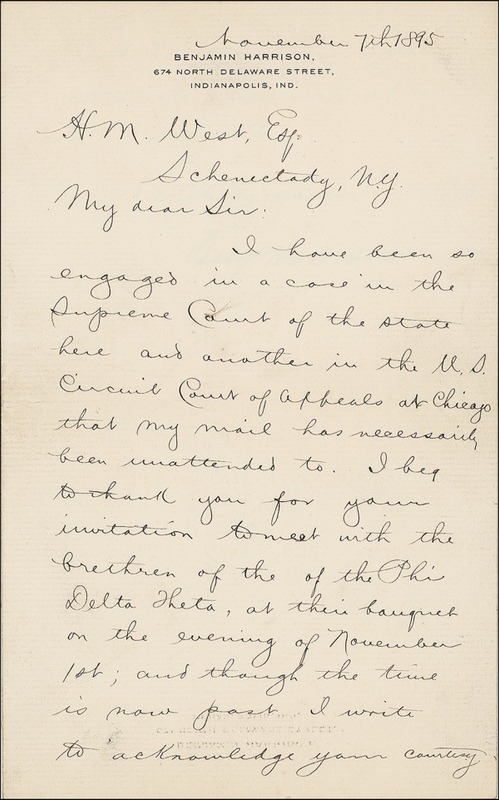 November 7th 1895
BENJAMIN HARRISON,
674 NORTH DELAWARE STREET,
INDIANAPOLIS, IND.
H. M. West, Esq.
Schenectady, N.Y.
My dear Sir:
I have been so
engaged in a case in the
Supreme Court of the state
here and another in the U. S.
Circuit Court of Appeals at Chicago
that my mail has necessarily
been unattended to. I beg
to thank you for your
invitation to meet with the
brethren of the of the Phi
Delta Theta, at their banquet
on the evening of November
1st; and though the time
is now past I write
to acknowledge your courtesy